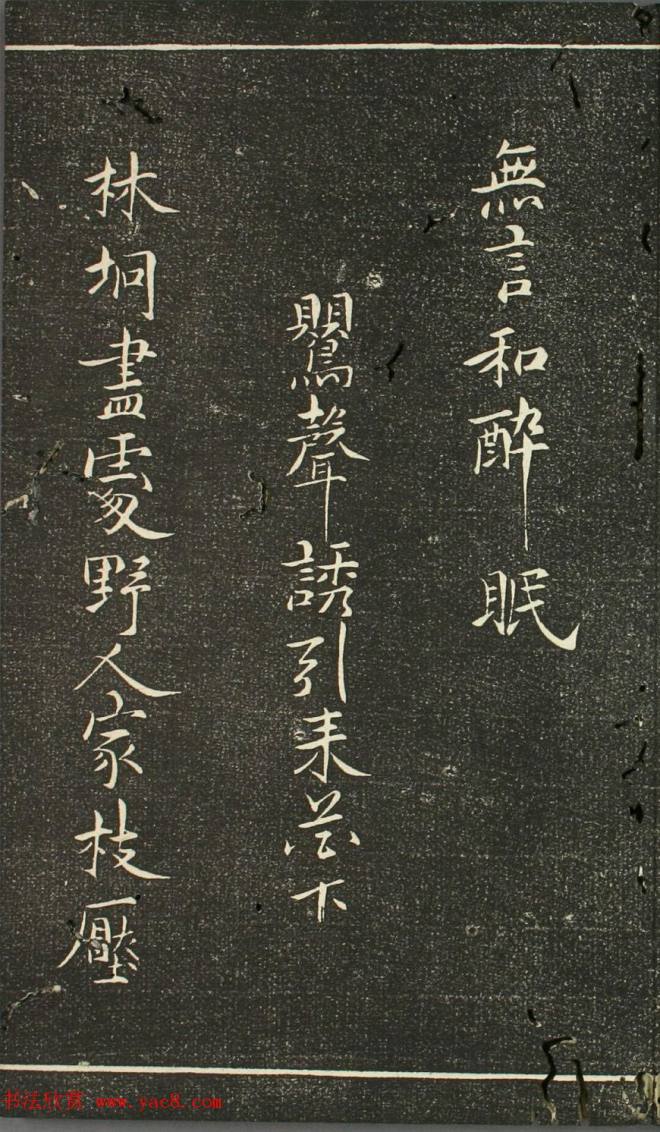 無言和醉眠
鶯聲誘引来花下
林坰盡處野人家枝壓
书法欣赏 www.yac8.com